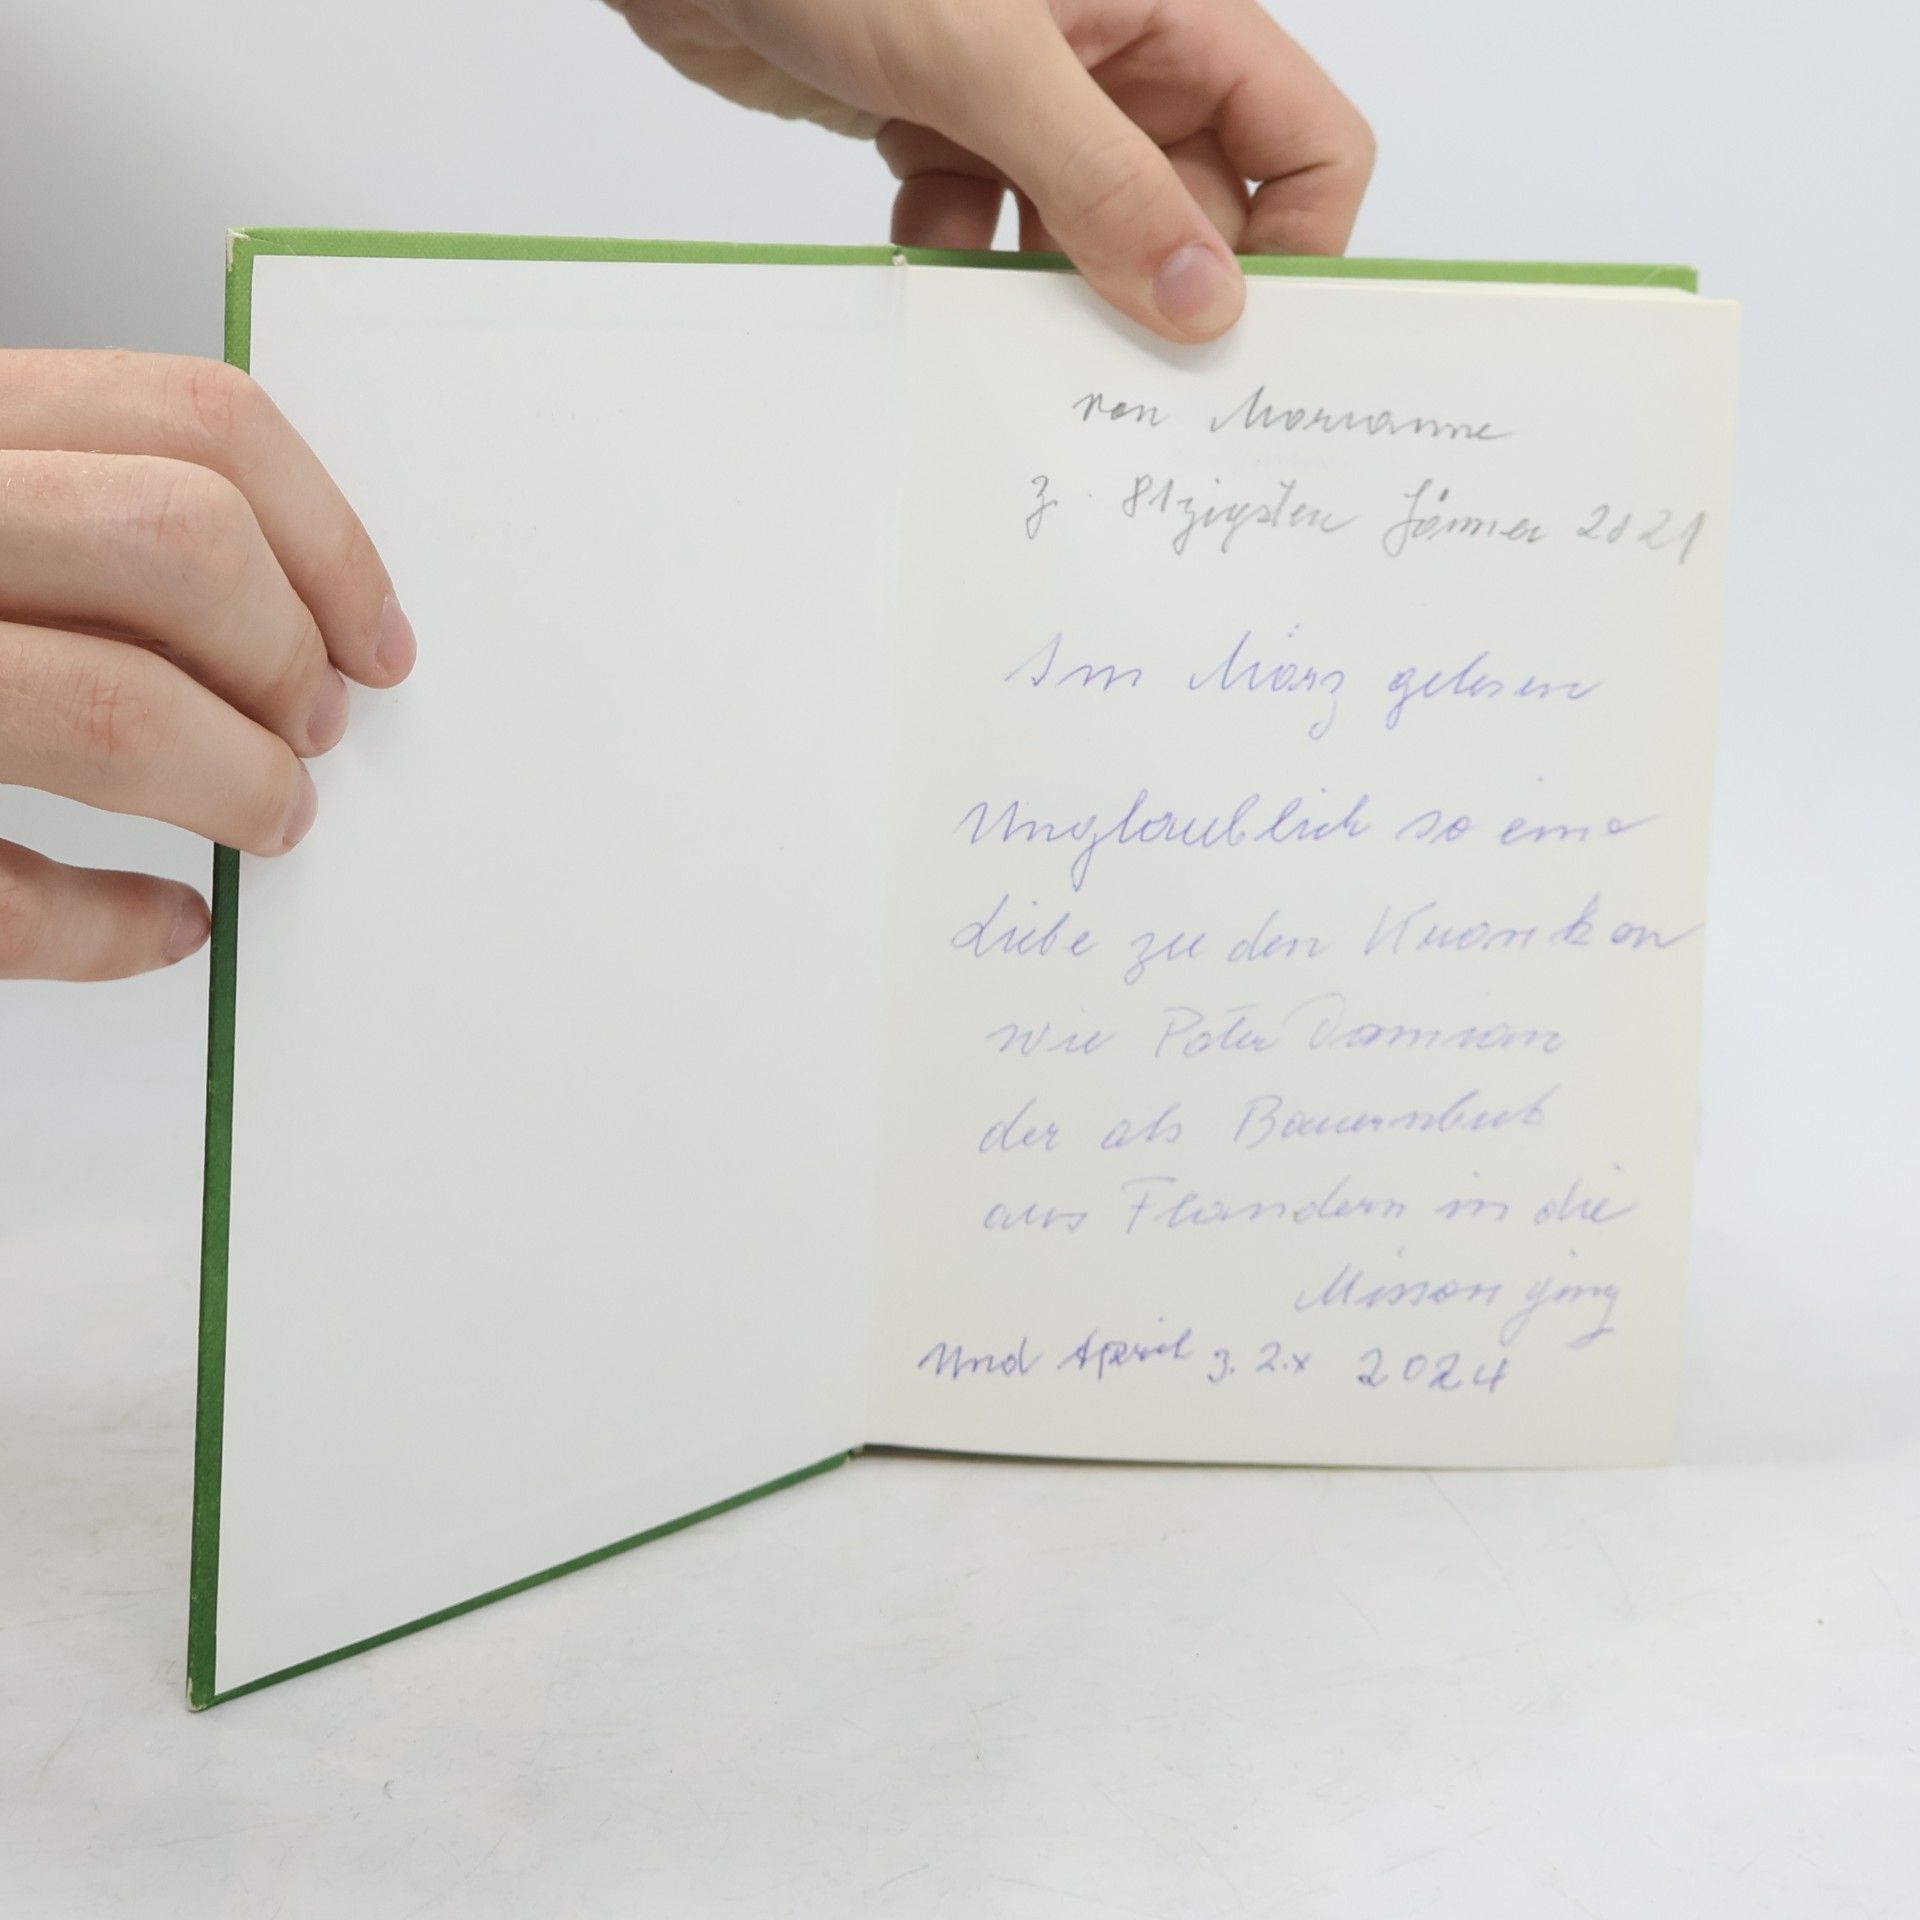 von Marianne
z. 81zigsten Jänner 2021
Im März gelesen
Unglaublich so eine
Liebe zu den Kranken
wie Pater Damian
der als Bauernbub
aus Flandern in die
Mission ging
Und April 3. 2.x 2024